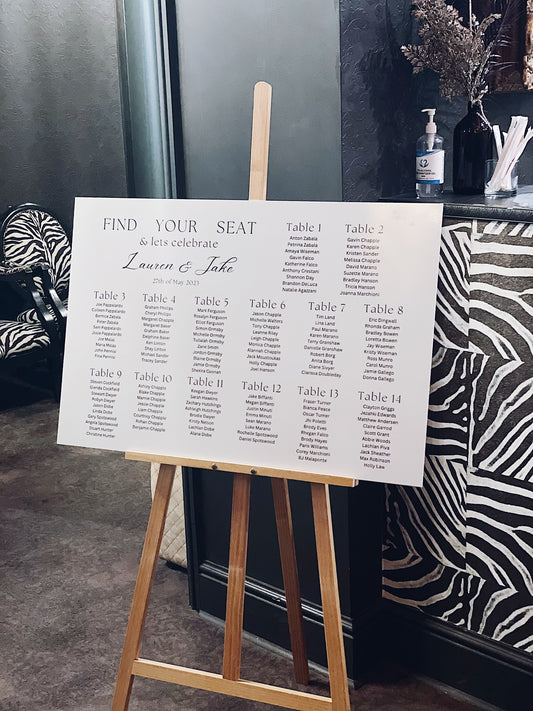 FIND YOUR SEAT
& lets celebrate
Lauren & Jake
27th of May 2023
Table 1
Anton Zabala
Petrina Zabala
Amaya Wiseman
Gavin Falco
Katherine Falco
Anthony Cristani
Shannon Day
Brandon DeLuca
Natalie Agazzani
Table 2
Gavin Chapple
Karen Chapple
Kristen Sander
Melissa Chapple
David Marano
Suzette Marano
Bradley Hanson
Tricia Hanson
Joanna Marchioni
Table 3
Joe Pappalardo
Colleen Pappalardo
Denise Zabala
Peter Zabala
Sam Pappalardo
Josie Pappalardo
Joe Maia
Maria Maia
John Penna
Pina Penna
Table 4
Graham Phillips
Cheryl Phillips
Margaret Chapple
Margaret Baker
Graham Baker
Damien Baker
Delphine Baker
Ken Linton
Jeff Linton
Billy Linton
Michael Sander
Tracey Sander
Table 5
Mark Ferguson
Rosalyn Ferguson
Elliot Ferguson
Simon Ormsby
Michelle Ormsby
Tullaiah Ormsby
Zane Smith
Jordan Ormsby
Blaine Ormsby
Danielle Ormsby
Jamie Ormsby
Sheena Colman
Table 6
Jason Challis
Michelle Walters
Tony Challis
Leanne Riley
Leigh Challis
Monica Challis
Timothy Challis
Alannah Challis
Jack Moudoulias
Holly Challis
Joel Hansson
Table 7
Tim Land
Lina Land
Paul Marano
Karen Marano
Terry Granshaw
Danielle Granshaw
Robert Borg
Anita Borg
Diane Sliver
Clarissa Doubleday
Table 8
Eric Dingwall
Rhonda Graham
Bradley Bowen
Loretta Bowen
Jay Wiseman
Kristy Wiseman
Ross Munro
Carol Munro
Jamie Gatenall
Donna Gatenall
Table 9
Steven Duckfield
Glenda Duckfield
Stewart Dwyer
Robyn Dwyer
John Dobe
Linda Dobe
Gary Spotswood
Angela Spotswood
Stuart Hunter
Christine Hunter
Table 10
Ainsley Chapple
Blake Chapple
Marie Chapple
Jessie Chapple
Liam Chapple
Courtney Chapple
Rohan Chapple
Benjamin Chapple
Table 11
Keegan Dwyer
Sarah Hawkins
Zachary Hutchings
Ashleigh Hutchings
Brodie Dwyer
Kirsty Nelson
Lachlan Dobe
Alana Dobe
Table 12
Jake Biffanti
Megan Biffanti
Justin Minuti
Emma Minuti
Sean Marano
Luke Marano
Rochelle Spotswood
Daniel Spotswood
Table 13
Fraser Turner
Bianca Peace
Oscar Turner
Jhi Poletti
Bricey Eves
Rhegan Falco
Brody Hayes
Paris Williams
Corey Marchioni
BJ Malaponte
Table 14
Clayton Griggs
Jezahki Edwards
Matthew Anderson
Claire Garrod
Scott Grant
Abbie Woods
Lachlan Piva
Jack Sheather
Max Robinson
Holly Law